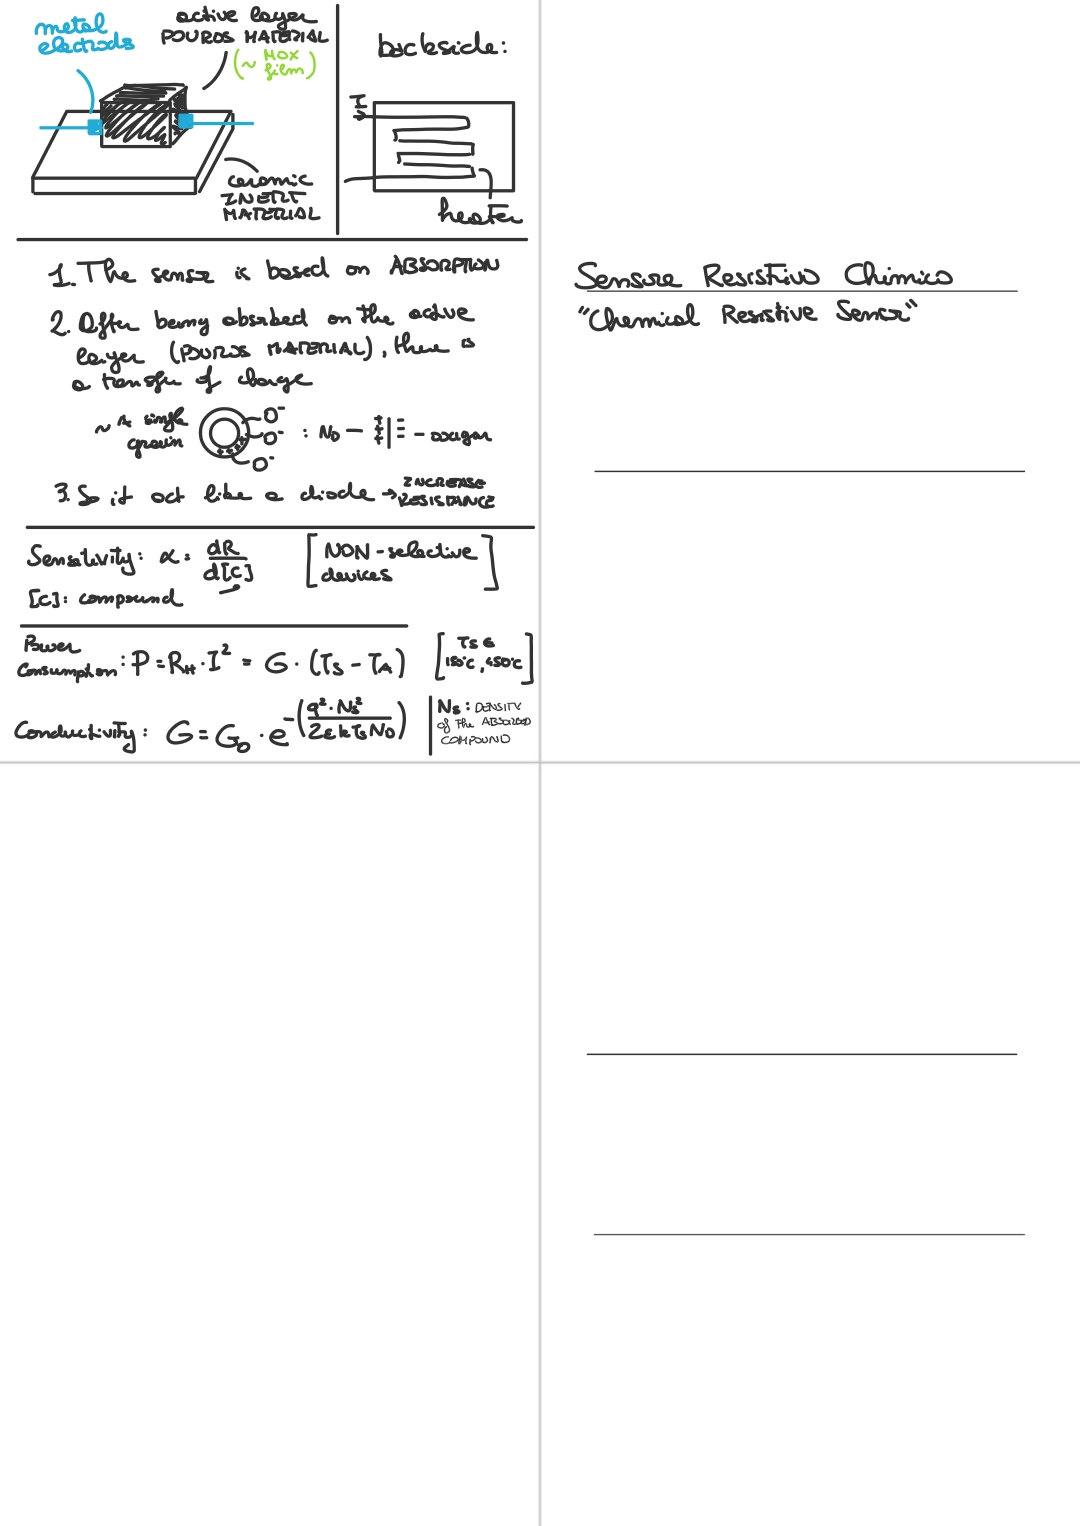 metal
electrods
active layer
POUROS MATERIAL
(~ MOX
film)
ceramic
INERT
MATERIAL
backside:
I
heater
1. The sensor is based on ABSORPTION
2. After being absorbed on the active
layer (POUROS MATERIAL), there is
a transfer of charge
~ A single
grain
O⁻
O⁻
O⁻
: ND - +++|--- - oxigen
3. So it act like a diode → INCREASE
RESISTANCE
Sensitivity: α = dR / d[C]
[NON-selective
devices]
[C]: compound
Power
Consumption: P = RH · I² = G · (TS - TA)
[TS ∈
150°C, 450°C]
Conductivity: G = G0 · e^-(q² · NS² / 2εkTSND)
NS: DENSITY
of The ABSORBED
COMPOUND
Sensore Resistivo Chimico
"Chemical Resistive Sensor"